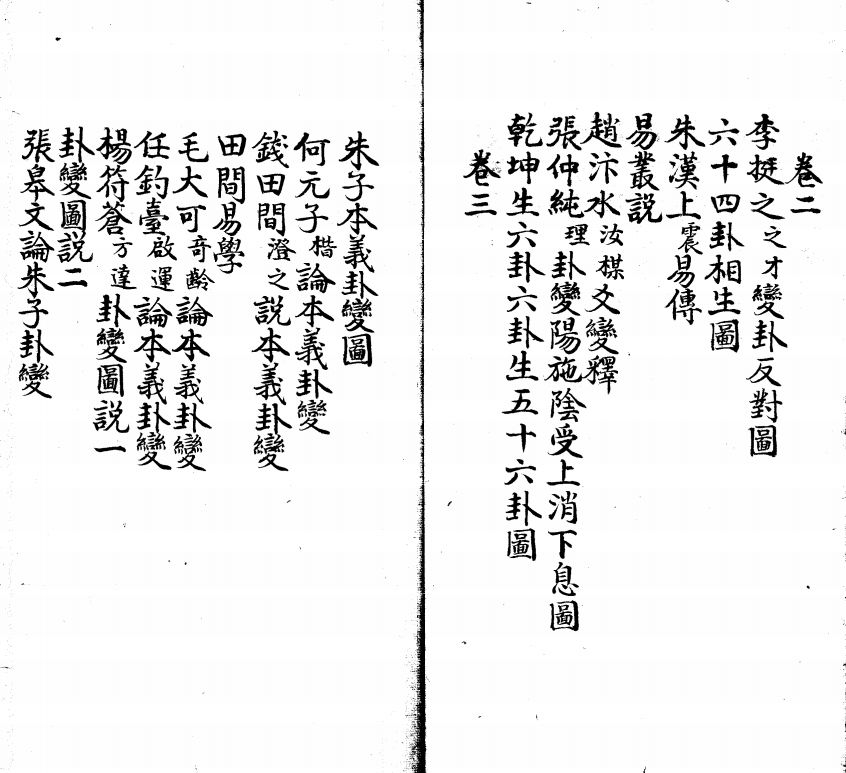 卷二
李挺之之才變卦反對圖
六十四卦相生圖
朱漢上震易傳
易叢説
趙汴水汝楳爻變釋
張仲純理卦變陽施陰受上消下息圖
乾坤生六卦六卦生五十六卦圖
卷三
朱子本義卦變圖
何元子楷論本義卦變
錢田間澄之説本義卦變
田間易學
毛大可奇齡論本義卦變
任釣臺啟運論本義卦變
楊符蒼方達卦變圖説一
卦變圖説二
張皋文論朱子卦變